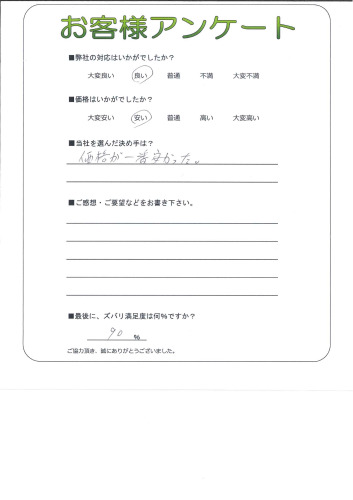 お客様アンケート
■弊社の対応はいかがでしたか?
大変良い 良い 普通 不満 大変不満
■価格はいかがでしたか?
大変安い 安い 普通 高い 大変高い
■当社を選んだ決め手は?
価格が一番安かった。
■ご感想・ご要望などをお書き下さい。
■最後に、ズバリ満足度は何%ですか?
90 %
ご協力頂き、誠にありがとうございました。